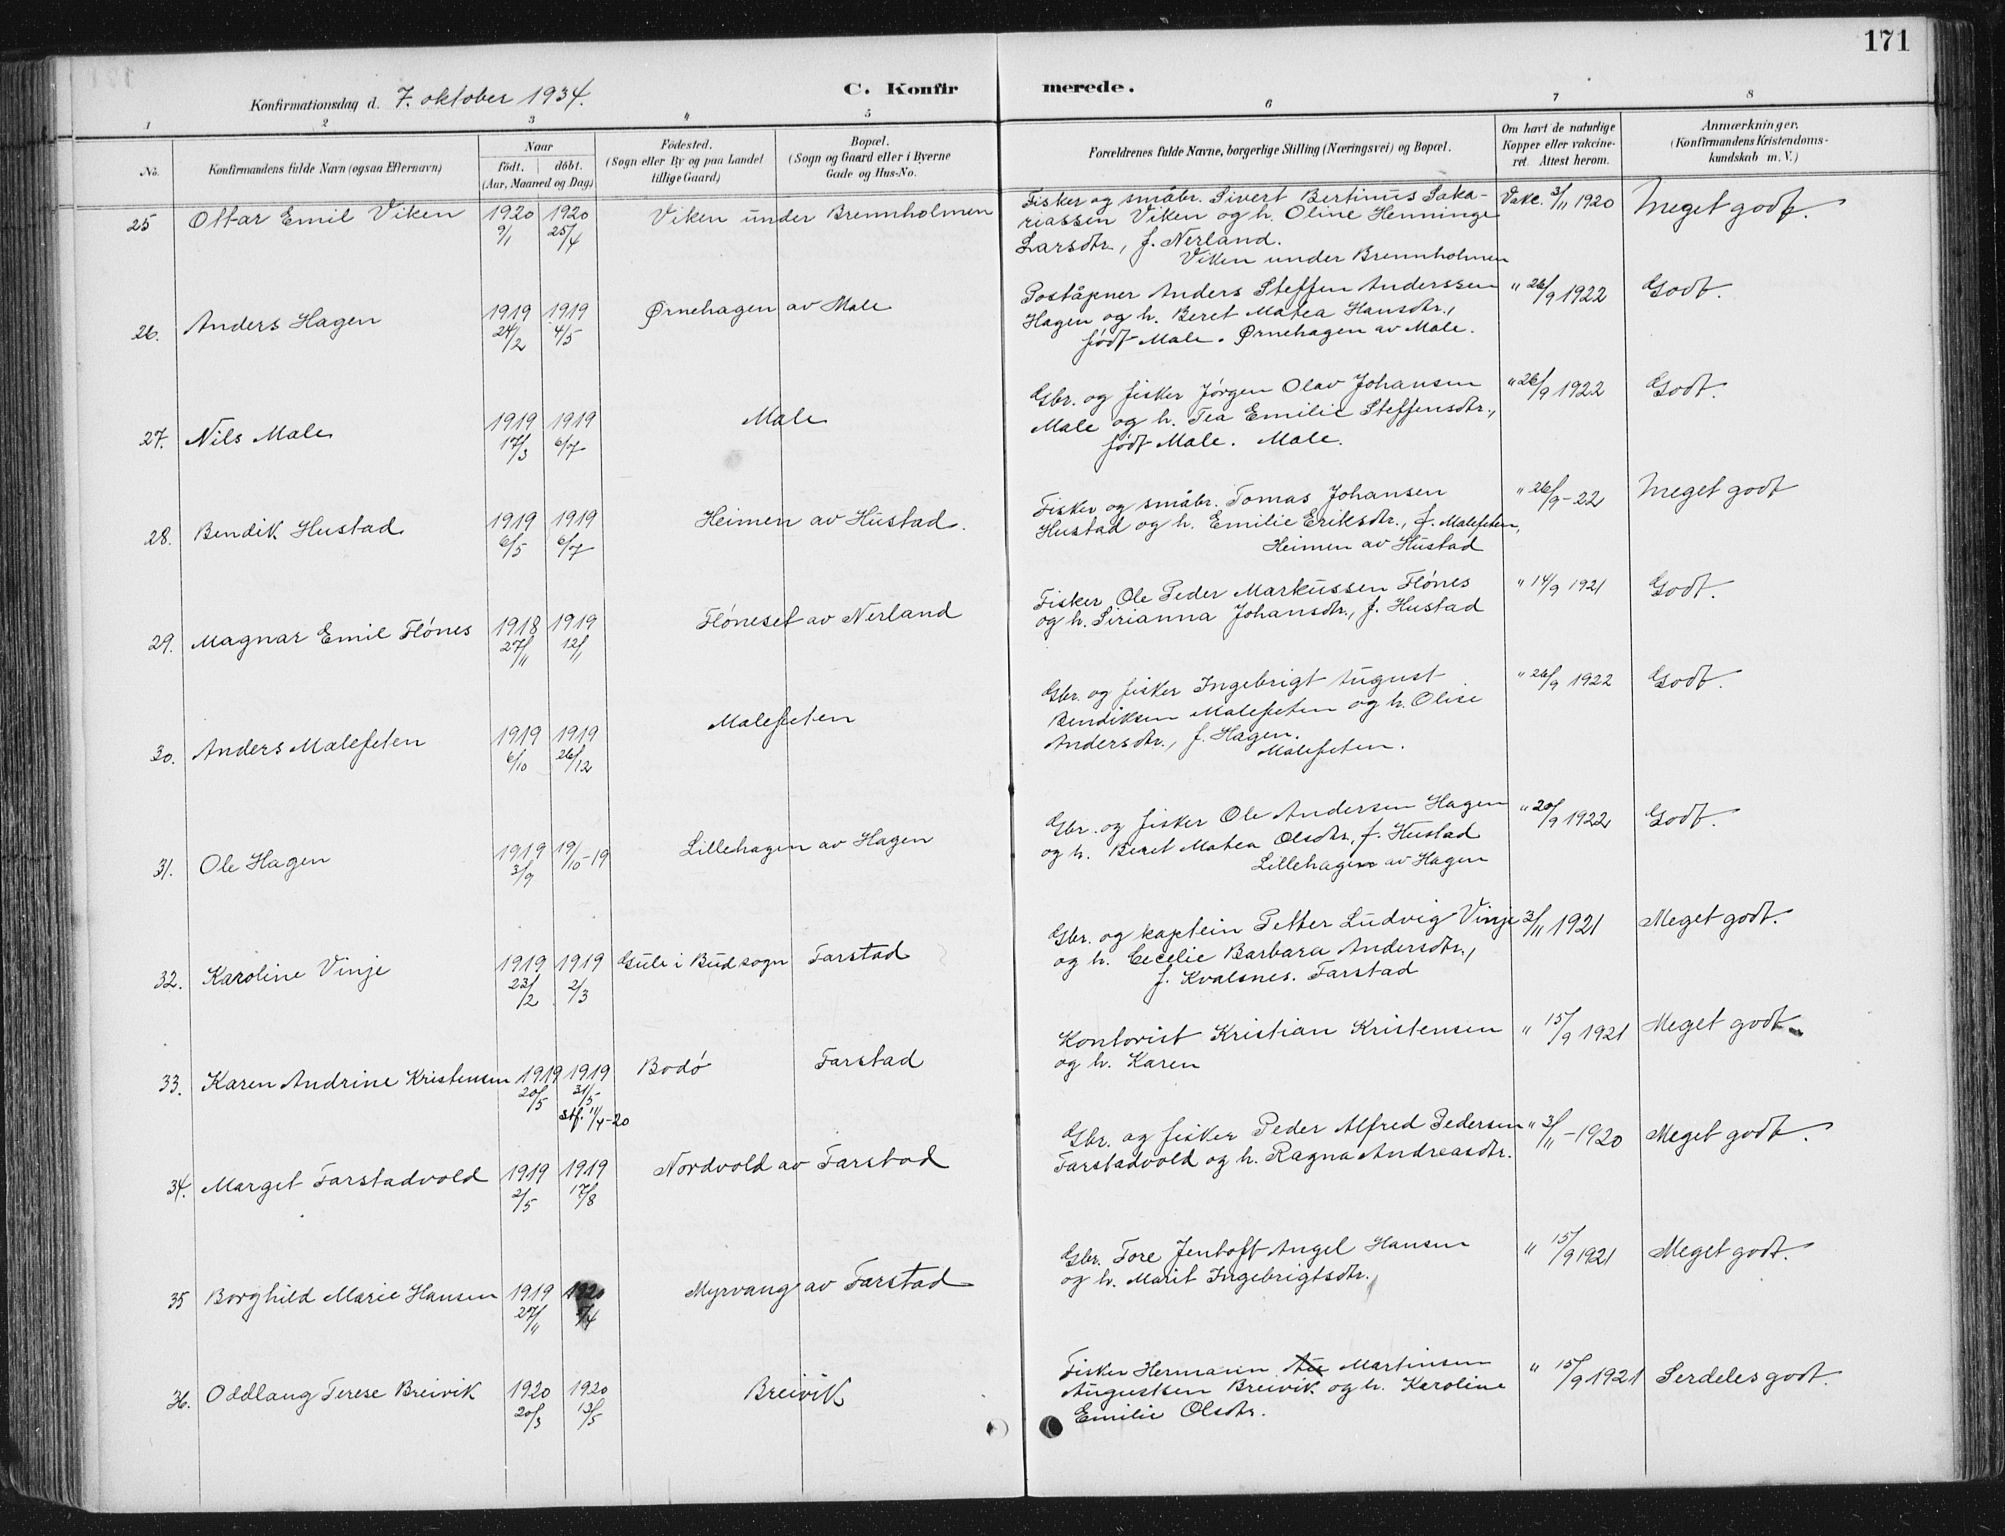 171
Konfirmationsdag d. 7. oktober 1934.
C. Konfirmerede.
1 2 3 4 5 6 7 8
No.
Konfirmandens fulde Navn (ogsaa Efternavn)
Naar
födt. döbt.
(Aar, Maaned og Dag)
Födested.
(Sogn eller By og paa Landet
tillige Gaard)
Bopæl.
(Sogn og Gaard eller i Byerne
Gade og Hus-No.
Forældrenes fulde Navne, borgerlige Stilling (Næringsvei) og Bopæl.
Om havt de naturlige
Kopper eller vakcine-
ret. Attest herom.
Anmærkninger.
(Konfirmandens Kristendoms-
kundskab m. V.)
25 Ottar Emil Viken 1920 1920 Viken under Brennholmen
9/1 25/4
Fisker og småbr. Sivert Bertinus Saka-
riassen Viken og h. Oline Henninge
Larsdtr., f. Nerland.
Viken under Brennholmen
Vakc. 3/11 1920 Meget godt.
26. Anders Hagen 1919 1919 Ørnehagen av Male
24/2 4/5
Poståpner Anders Steffen Anderssen
Hagen og h. Beret Matea Hansdtr.,
født Male. Ørnehagen av Male.
" 26/9 1922 Godt.
27. Nils Male 1919 1919 Male
17/3 6/7
Gbr. og fisker Jørgen Olav Johansen
Male og h. Tea Emilie Steffensdtr.,
født Male. Male.
" 26/9 1922 Godt.
28. Bendik Hustad 1919 1919 Heimen av Hustad.
6/5 6/7
Fisker og småbr. Tomas Johansen
Hustad og h. Emilie Eriksdtr., f. Malefeten,
Heimen av Hustad
" 26/9-22 Meget godt
29. Magnar Emil Flónes 1918 1919 Flóneset av Nerland
27/11 12/1
Fisker Ole Peder Markussen Flónes
og h. Sirianna Johansdtr., f. Hustad
" 14/9 1921 Godt.
30. Anders Malefeten 1919 1919 Malefeten
6/10 26/12
Gbr. og fisker Ingebrigt August
Bendiksen Malefeten og h. Olise
Andersdtr., f. Hagen.
Malefeten.
" 26/9 1922 Godt.
31. Ole Hagen 1919 19/10-19 Lillehagen av Hagen
3/9
Gbr. og fisker Ole Andersen Hagen
og h. Beret Matea Olsdtr., f. Hustad
Lillehagen av Hagen
" 20/9 1922 Godt.
32. Karoline Vinje 1919 1919 Gule i Bud sogn Farstad
23/2 2/3
Gbr. og kaptein Petter Ludvig Vinje
og h. Cecelie Barbara Andersdtr.,
f. Kvalsnes. Farstad
3/11 1921 Meget godt.
33. Karen Andrine Kristensen 1919 1919 Bodó Farstad
20/5 31/5
Stf. 11/4-20
Kontorist Kristian Kristensen
og h. Karen
" 15/9 1921 Meget godt.
34. Marget Farstadvold 1919 1919 Nordvold av Farstad
2/5 17/8
Gbr. og fisker Peder Alfred Pedersen
Farstadvold og h. Ragna Andreasdtr.
" 3/11-1920 Meget godt.
35 Borghild Marie Hansen 1919 1920 Myrvang av Farstad
27/11
Gbr. Tore Jentoft Angel Hansen
og h. Marit Ingebrigtsdtr.
" 15/9 1921 Meget godt.
36. Oddlaug Terese Breivik 1920 1920 Breivik
20/3 13/5
Fisker Hermann Martinsen
Augustsen Breivik og h. Karoline
Emilie Olsdtr.
" 15/9 1921 Serdeles godt.